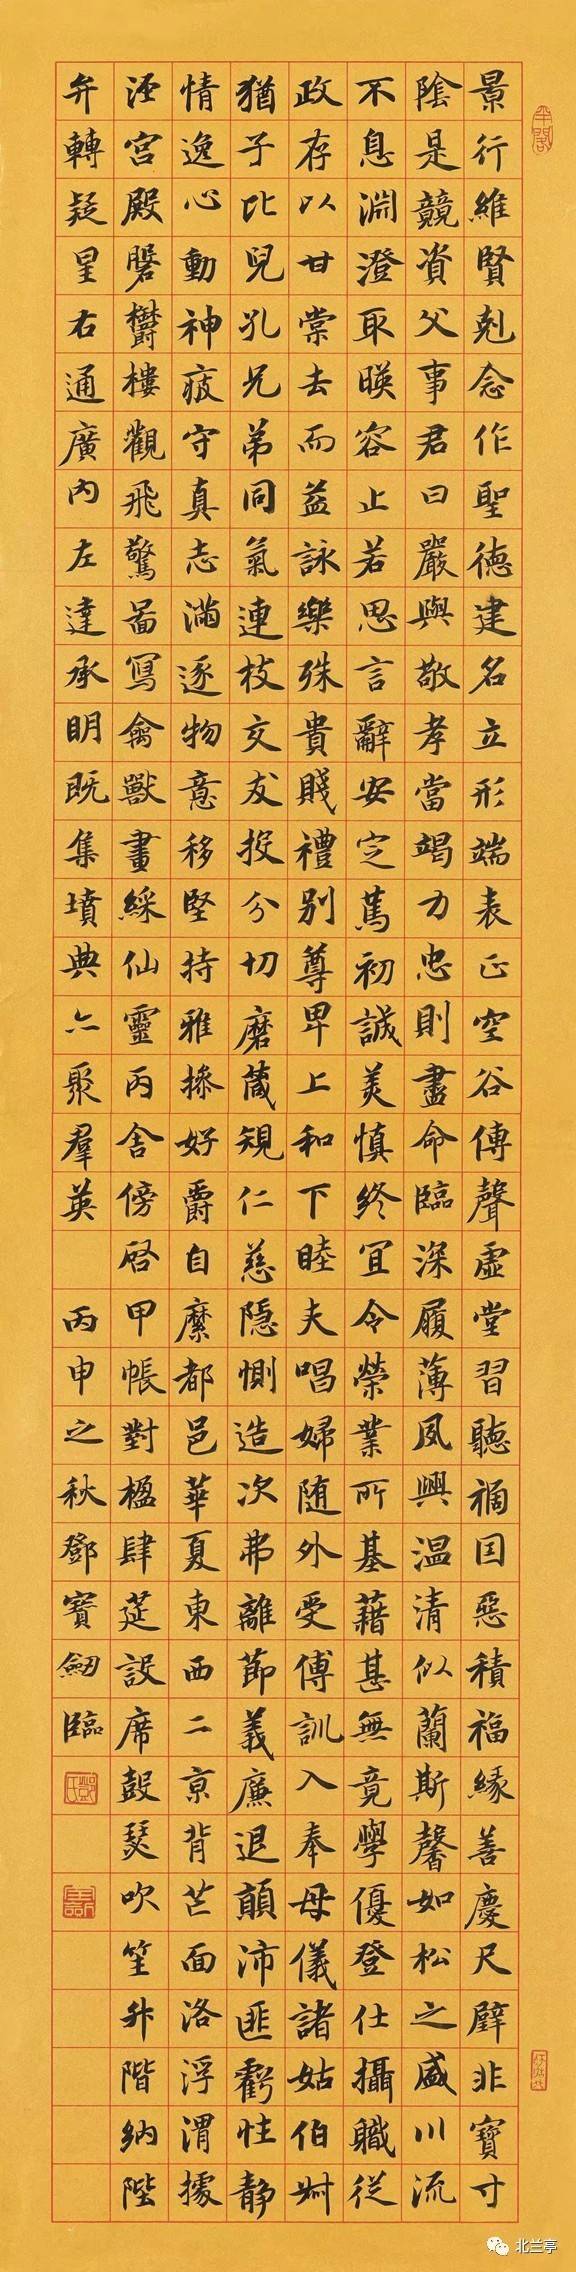 景行維賢剋念作聖德建名立形端表正空谷傳聲虛堂習聽禍因惡積福緣善慶尺璧非寶寸
陰是競資父事君曰嚴與敬孝當竭力忠則盡命臨深履薄夙興温清似蘭斯馨如松之盛川流
不息淵澄取暎容止若思言辭安定篤初誠美慎終宜令榮業所基藉甚無竟學優登仕攝職從
政存以甘棠去而益詠樂殊貴賤禮別尊卑上和下睦夫唱婦随外受傅訓入奉母儀諸姑伯叔
猶子比兒孔兄弟同氣連枝交友投分切磨箴規仁慈隐惻造次弗離節義廉退顛沛匪虧性静
情逸心動神疲守真志滿逐物意移堅持雅操好爵自縻都邑華夏東西二京背芒面洛浮渭據
涇宮殿磐鬱樓觀飛驚圖寫禽獸畫綵仙靈丙舍傍啓甲帳對楹肆筵設席鼓瑟吹笙升階納陛
弁轉疑星右通廣內左達承明既集墳典亦聚羣英 丙申之秋鄧寶劒臨
鄧氏
北兰亭